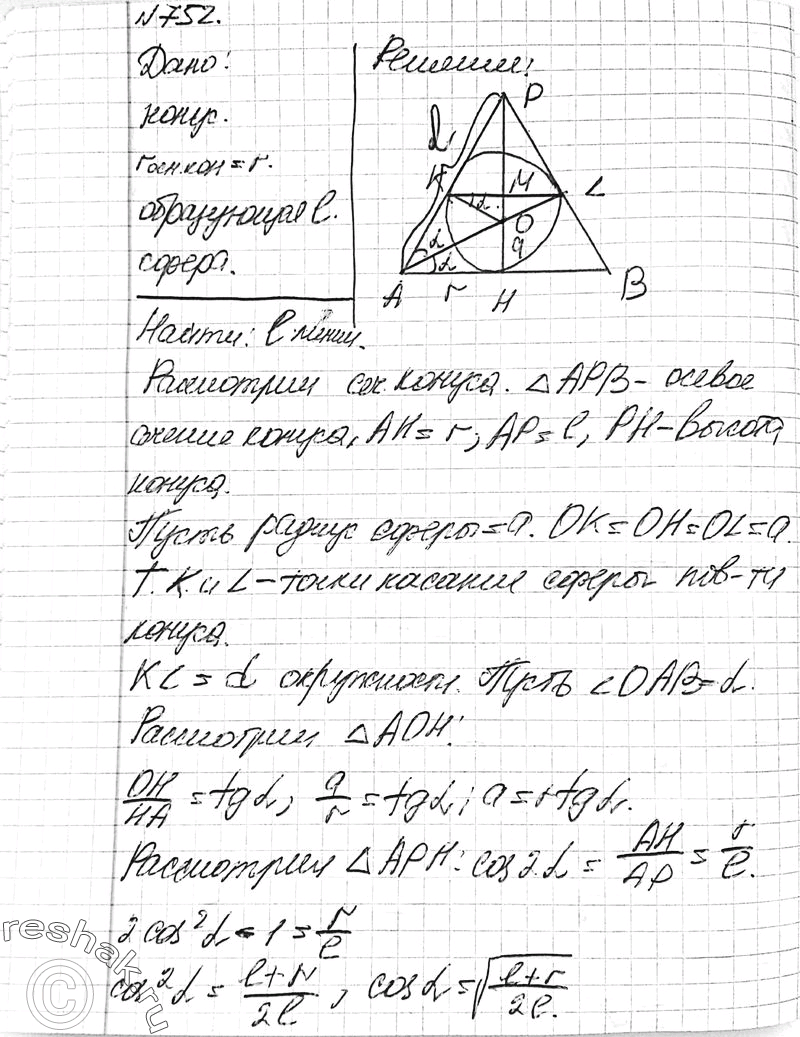 N752.
Дано:
конус.
rосн.кон = r.
образующая l.
сфера.
Найти: l линии.
Решение:
P
l
K
M
L
2α
O
a
α
α
A
r
H
B
Рассмотрим сеч. конуса. △APB - осевое
сечение конуса, AH = r; AP = l, PH - высота
конуса.
Пусть радиус сферы = a. OK = OH = OL = a.
т. K и L - точки касание сферы пов-ти
конуса.
KL = d окружности. Пусть ∠OAB = α.
Рассмотрим △AOH:
OH/HA = tgα, a/r = tgα; a = r tgα.
Рассмотрим △APH: cos2α = AH/AP = r/l.
2cos²α - 1 = r/l
cos²α = (l+r)/2l, cosα = √((l+r)/2l).
reshak.ru
©